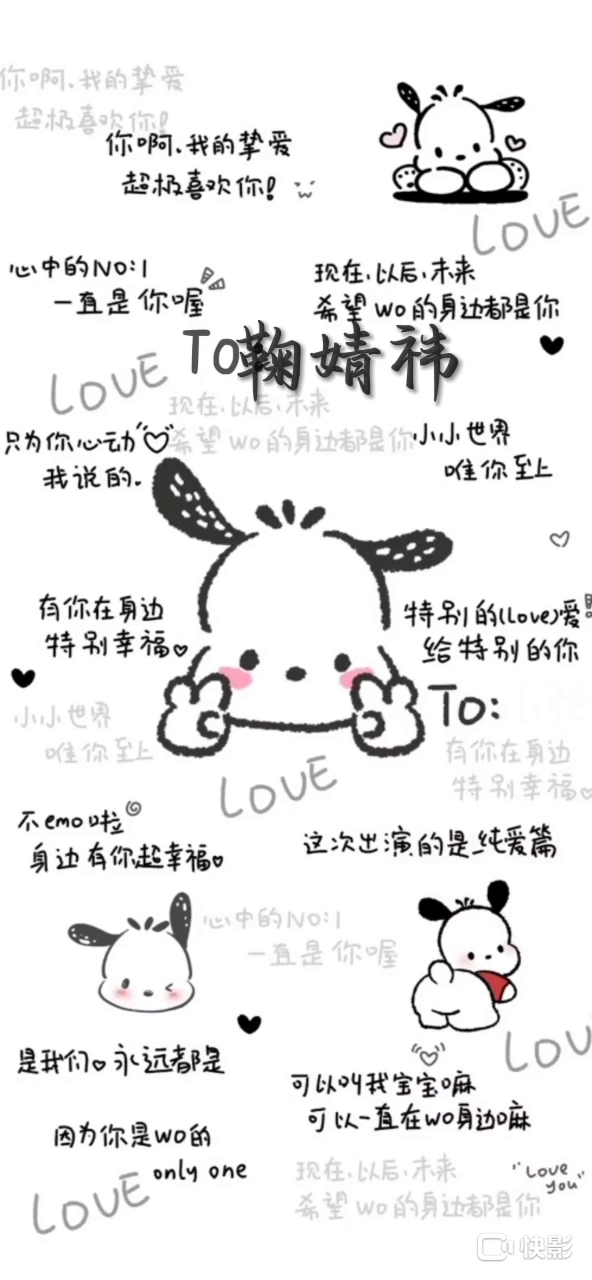 你啊、我的挚爱
超极喜欢你!
你啊、我的挚爱
超极喜欢你!
LOVE
心中的NO:1
一直是你喔
现在、以后、未来
希望wo的身边都是你
To鞠婧祎
LOVE
现在、以后、未来
希望wo的身边都是你
只为你心动
我说的.
小小世界
唯你至上
有你在身边
特别幸福
特别的(Love)爱
给特别的你
To:
小小世界
唯你至上
有你在身边
特别幸福
LOVE
不emo啦
身边有你超幸福
这次出演的是纯爱篇
心中的NO:1
一直是你喔
LOVE
是我们 永远都是
可以叫我宝宝嘛
可以一直在wo身边嘛
因为你是wo的
only one
现在、以后、未来
希望wo的身边都是你
"Love you"
LOVE
快影